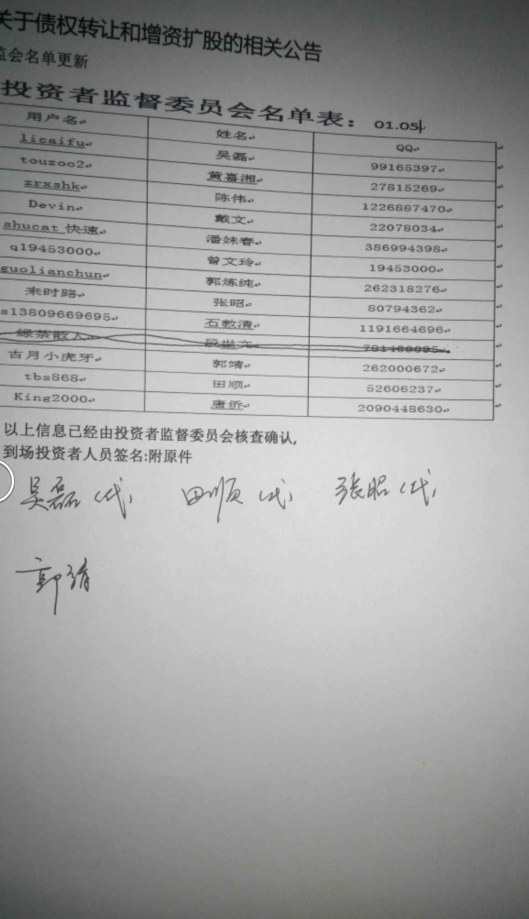 关于债权转让和增资扩股的相关公告
监会名单更新
投资者监督委员会名单表：01.05
用户名 姓名 QQ
licaifu 吴磊 99165397
touzoo2 黄喜湘 27815269
zrxshk 陈伟 1226887470
Devin 戴文 22078034
shucat 快速 潘妹春 386994398
q19453000 曾文玲 19453000
guolianchun 郭炼纯 262318276
来时路 张昭 80794362
s13809669695 石敷清 1191664696
绿茶散人
古月小虎牙 郭靖 262000672
tbs868 田顺 52606237
King2000 唐侨 2090448630
以上信息已经由投资者监督委员会核查确认,
到场投资者人员签名:附原件
吴磊（代） 田顺（代） 张昭（代）
郭靖